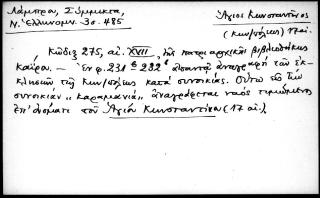 Λάμπρου, Σύμμικτα,
Ν. Ἑλληνομν. 3ο. 485
Ἅγιος Κωνσταντῖνος
(Κων/πόλεως) 17 αἰ.
Κῶδιξ 275, αἰ. XVII, τῆς πατριαρχικῆς βιβλιοθήκης
Καΐρου. — Ἐν φ. 231 – 232 ἀπαντᾷ ἀναγραφὴ τῶν ἐκ-
κλησιῶν τῆς Κων/πόλεως κατὰ συνοικίας. Οὕτω εἰς τὴν
συνοικίαν "Καραμανιά" ἀναγράφεται ναὸς τιμώμενος
ἐπ' ὀνόματι τοῦ Ἁγίου Κωνσταντίνου (17 αἰ.).